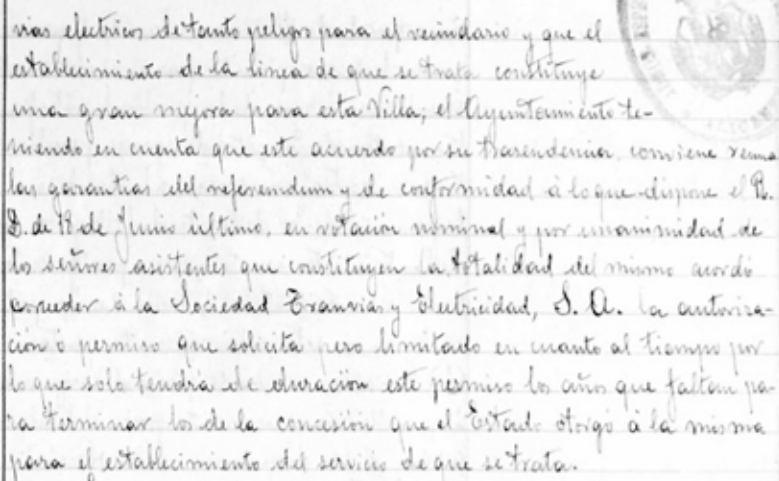 vias electricos de tanto peligro para el vecindario y que el
establecimiento de la linea de que se trata constituye
una gran mejora para esta Villa; el Ayuntamiento te-
niendo en cuenta que este acuerdo por su trasendencia, conviene reuna
las garantias del referendum y de conformidad á lo que dispone el R.
D. de 18 de Junio último, en votación nominal y por unanimidad de
los señores asistentes que constituyen la totalidad del mismo acordó
conceder á la Sociedad Tranvias y Electricidad, S. A. la autoriza-
ción ó permiso que solicita pero limitado en cuanto al tiempo por
lo que solo tendrá de duración este permiso los años que faltan pa-
ra terminar los de la concesión que el Estado otorgó á la misma
para el establecimiento del servicio de que se trata.